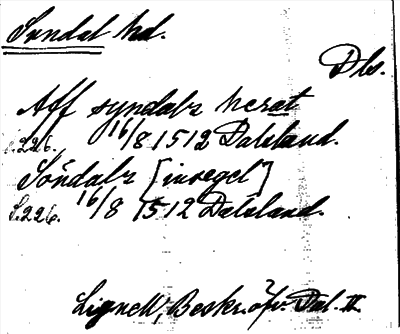 Sundal hd.
Dls.
Aff syndalz herat
S.226. 16/8 1512 Dalsland.
Söndalz [insegel]
S.226. 16/8 1512 Dalsland.
Lignell, Beskr. öfv. Dal. II.